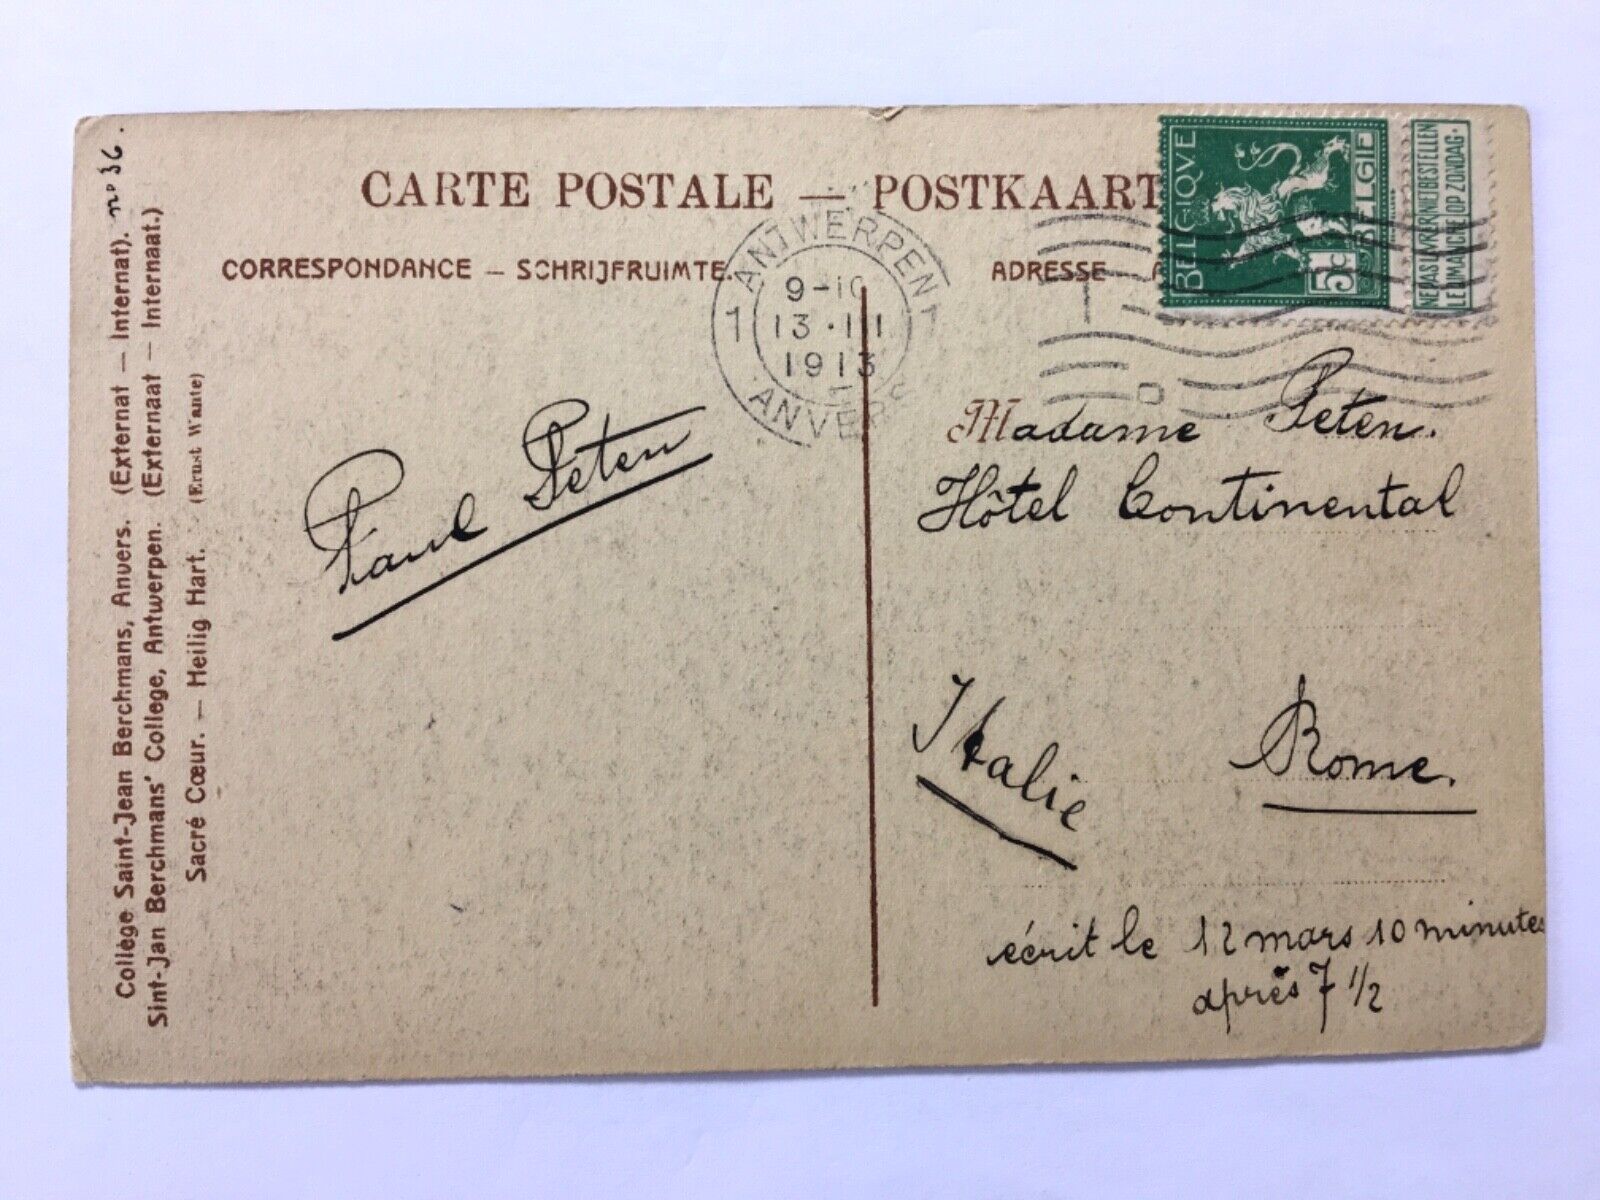 CARTE POSTALE — POSTKAART
CORRESPONDANCE — SCHRIJFRUIMTE.
ADRESSE
BELGIQVE
BELGIË
5c
NE PAS LIVRER
LE DIMANCHE
NIET BESTELLEN
OP ZONDAG
1 ANTWERPEN 1
9-10
13·III
1913
ANVERS
Paul Peten
Madame Peten.
Hôtel Continental
Italie
Rome.
écrit le 12 mars 10 minutes
après 7 1/2
Collège Saint-Jean Berchmans, Anvers. (Externat — Internat). n° 36.
Sint-Jan Berchmans' College, Antwerpen. (Externaat — Internaat.)
Sacré Cœur. — Heilig Hart. (Ernst Wante)